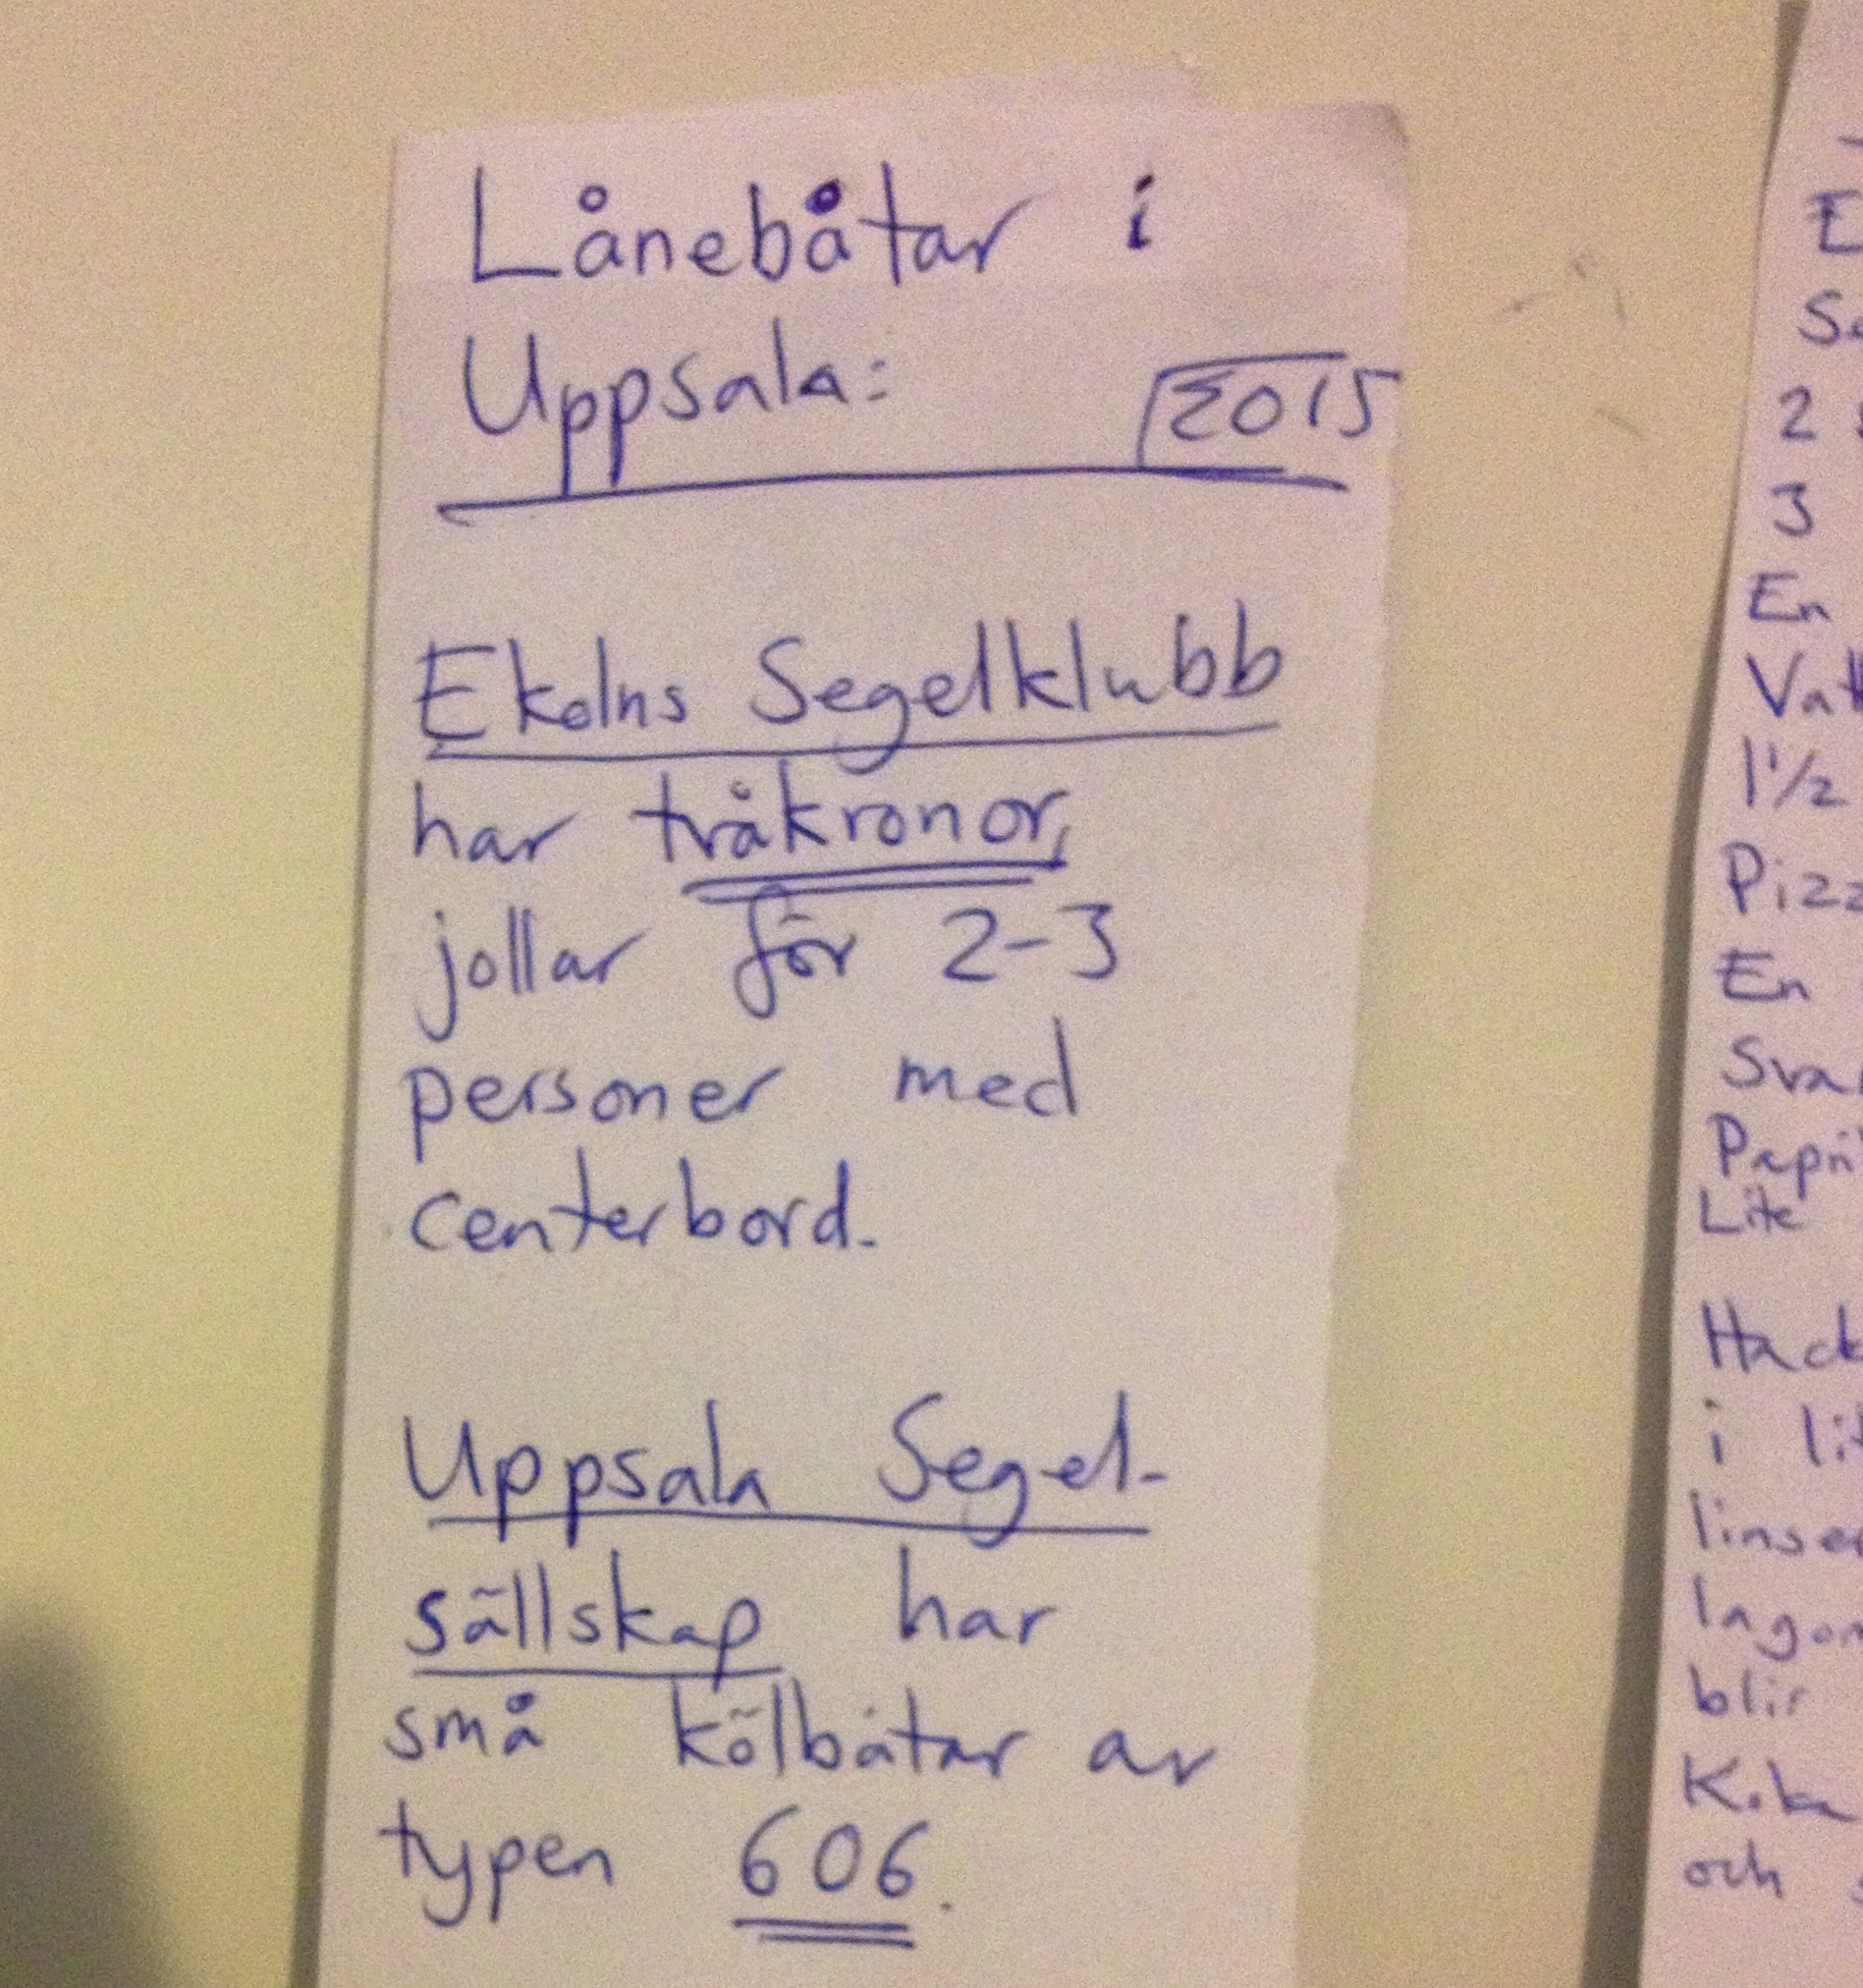 Lånebåtar i
Uppsala: 2015
Ekolns Segelklubb
har tvåkronor,
jollar för 2-3
personer med
centerbord.
Uppsala Segel-
sällskap har
små kölbåtar av
typen 606.
E
2
3
En
1 1/2
Pizz
En
Svar
Papri
Lite
Hack
i lit
linser
lagom
blir
Koka
och